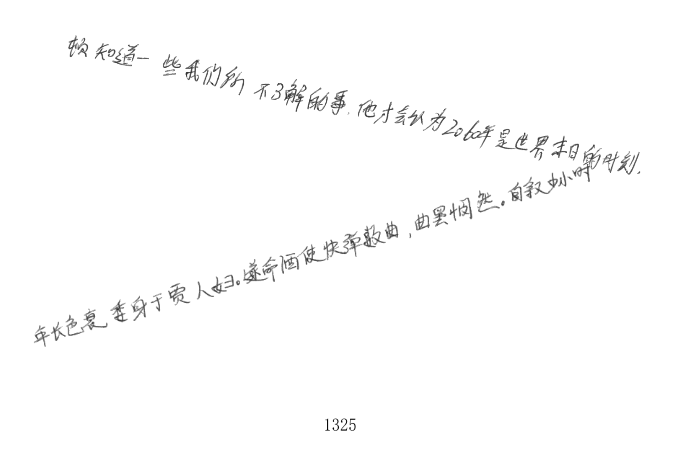 顿知道一些我们所不了解的事.他才会认为2060年是世界末日的时刻.
年长色衰,委身于贾人妇。遂命酒使快弹数曲,曲罢悯然。自叙少小时
1325